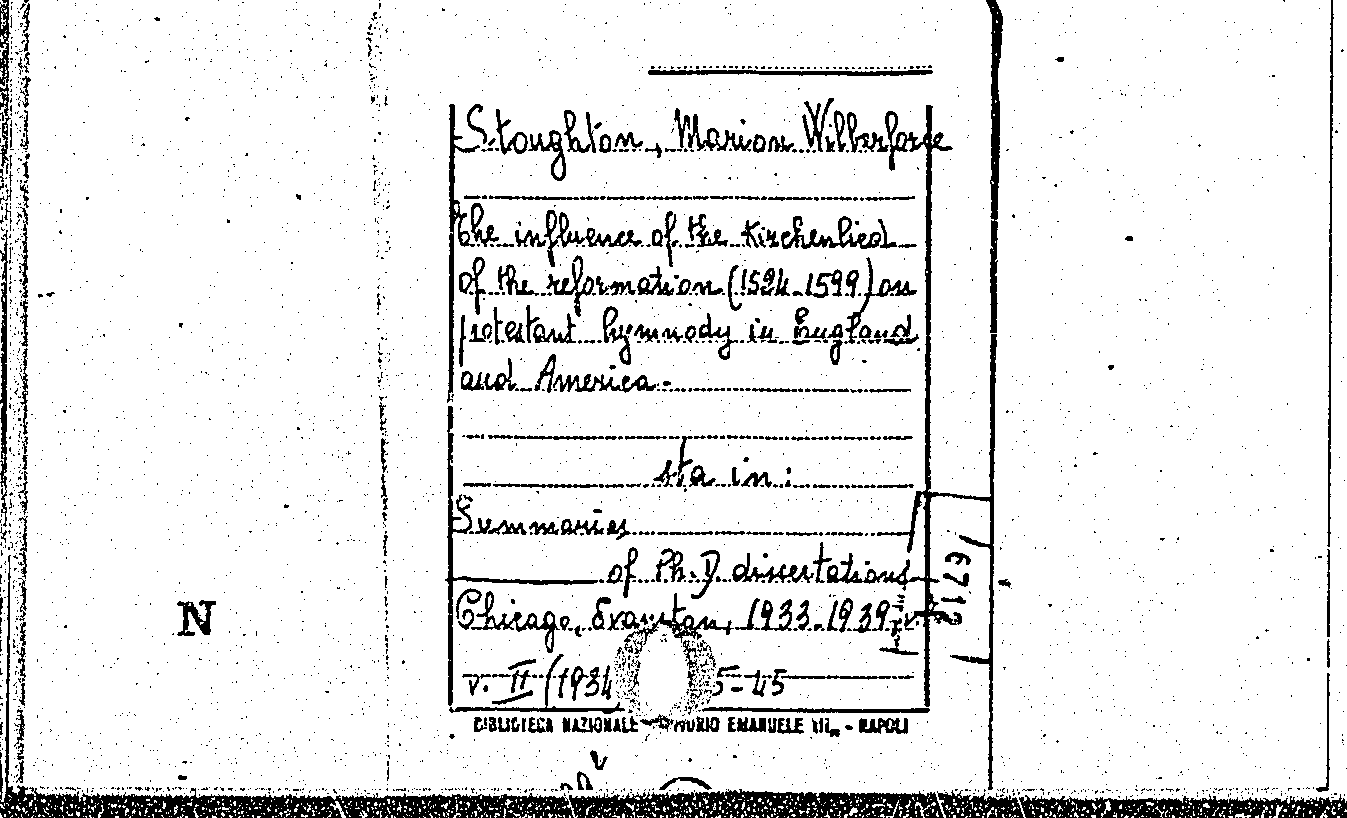 Stoughton, Marion Wilberforce
The influence of the Kirchenlied
of the reformation (1524-1599) on
protestant hymnody in England
and America.
sta in:
Summaries
of Ph. D. dissertations
Chicago, Evanston, 1933-1939
v. II (1934 5-45
6712
N
BIBLIOTECA NAZIONALE EMANUELE III„ - NAPOLI